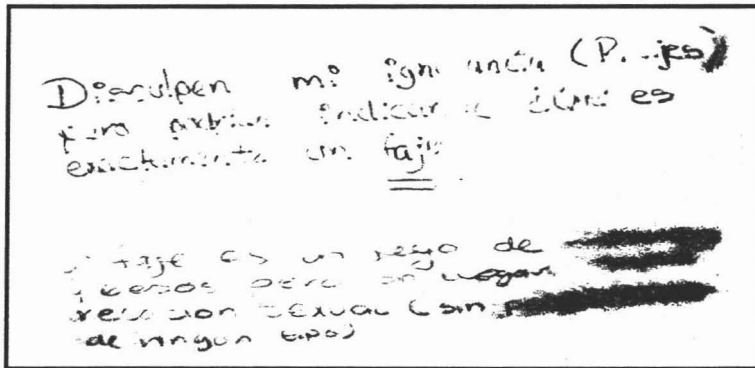 Disculpen mi ignorancia (P...jes)
pero podrían indicarme cómo es
exactamente un faje
faje es un juego de
besos pero sin llegar
relación sexual (sin
de ningun tipo)